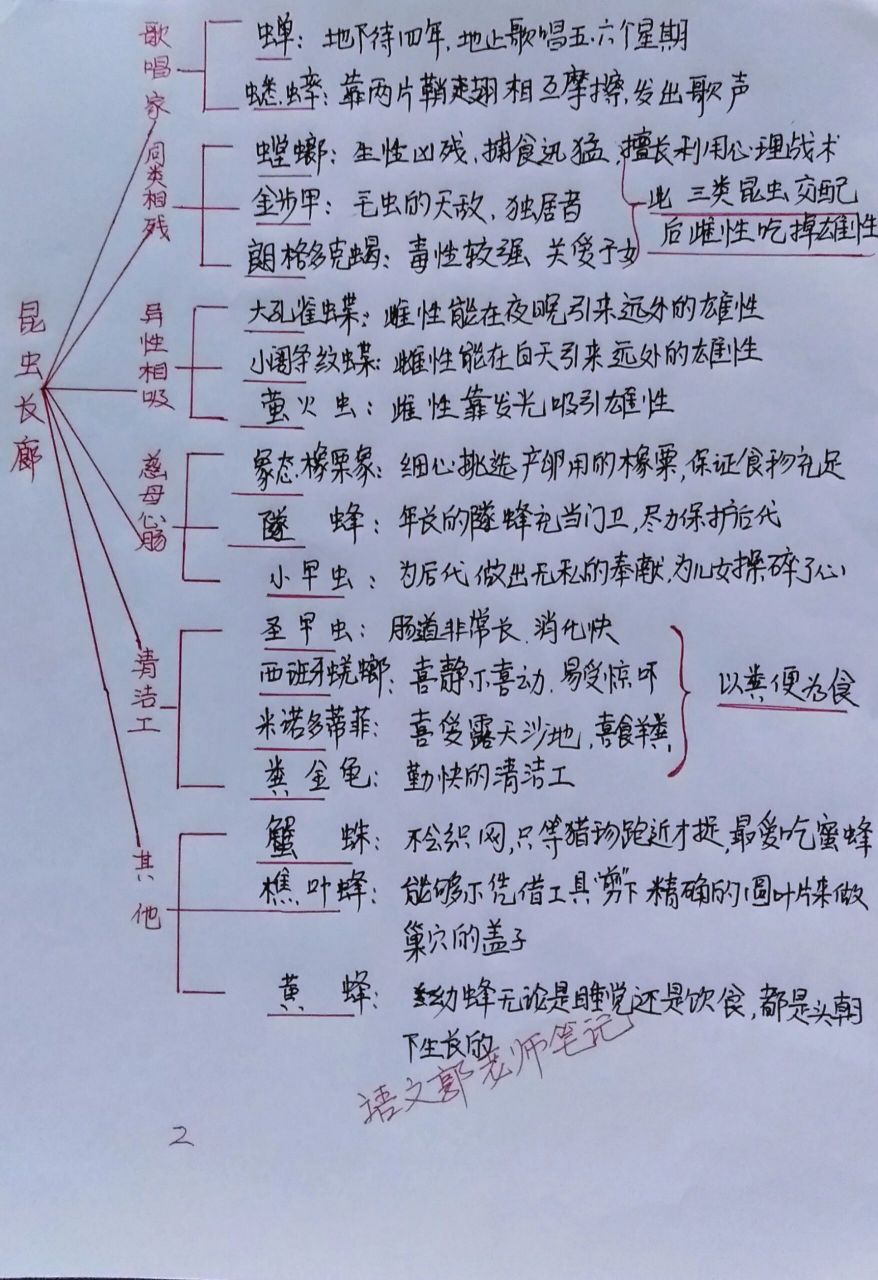 昆虫长廊
歌唱家
蝉：地下待四年,地上歌唱五.六个星期
蟋蟀：靠两片鞘翅相互摩擦,发出歌声
同类相残
螳螂：生性凶残,捕食迅猛,擅长利用心理战术
金步甲：毛虫的天敌,独居者
朗格多克蝎：毒性较强、关爱子女
此三类昆虫交配
后雌性吃掉雄性
异性相吸
大孔雀蝶：雌性能在夜晚引来远处的雄性
小阔条纹蝶：雌性能在白天引来远处的雄性
萤火虫：雌性靠发光吸引雄性
慈母心肠
象态橡栗象：细心挑选产卵用的橡栗,保证食物充足
隧蜂：年长的隧蜂充当门卫,尽力保护后代
小甲虫：为后代做出无私的奉献,为儿女操碎了心
清洁工
圣甲虫：肠道非常长、消化快
西班牙蜣螂：喜静不喜动、易受惊吓
米诺多蒂菲：喜爱露天沙地,喜食羊粪,
粪金龟：勤快的清洁工
以粪便为食
其他
蟹蛛：不会织网,只等猎物跑近才捉,最爱吃蜜蜂
樵叶蜂：能够不凭借工具"剪"下精确的圆叶片来做
巢穴的盖子
黄蜂：幼蜂无论是睡觉还是饮食,都是头朝
下生长的
语文郭老师笔记
2